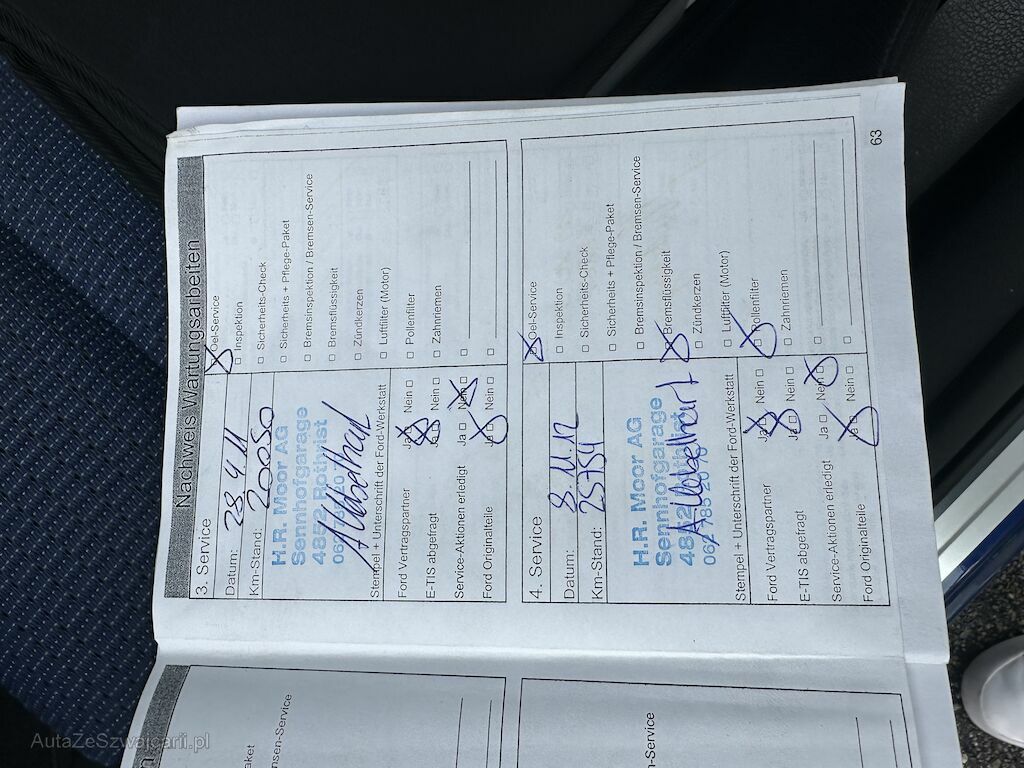 Nachweis Wartungsarbeiten
3. Service
Datum: 28.4.11
Km-Stand: 20050
H.R. Moor AG
Sennhofgarage
4852 Rothrist
Stempel + Unterschrift der Ford-Werkstatt
Ford Vertragspartner Ja Nein
E-TIS abgefragt Ja Nein
Service-Aktionen erledigt Ja Nein
Ford Originalteile Ja Nein
Oel-Service
Inspektion
Sicherheits-Check
Sicherheits + Pflege-Paket
Bremsinspektion / Bremsen-Service
Bremsflüssigkeit
Zündkerzen
Luftfilter (Motor)
Pollenfilter
Zahnriemen
4. Service
Datum: 8.11.12
Km-Stand: 25754
H.R. Moor AG
Sennhofgarage
4852 Rothrist
062 785 20 10
Stempel + Unterschrift der Ford-Werkstatt
Ford Vertragspartner Ja Nein
E-TIS abgefragt Ja Nein
Service-Aktionen erledigt Ja Nein
Ford Originalteile Ja Nein
Oel-Service
Inspektion
Sicherheits-Check
Sicherheits + Pflege-Paket
Bremsinspektion / Bremsen-Service
Bremsflüssigkeit
Zündkerzen
Luftfilter (Motor)
Pollenfilter
Zahnriemen
63
aket
nsen-Service
-Service
AutaZeSzwajcarii.pl